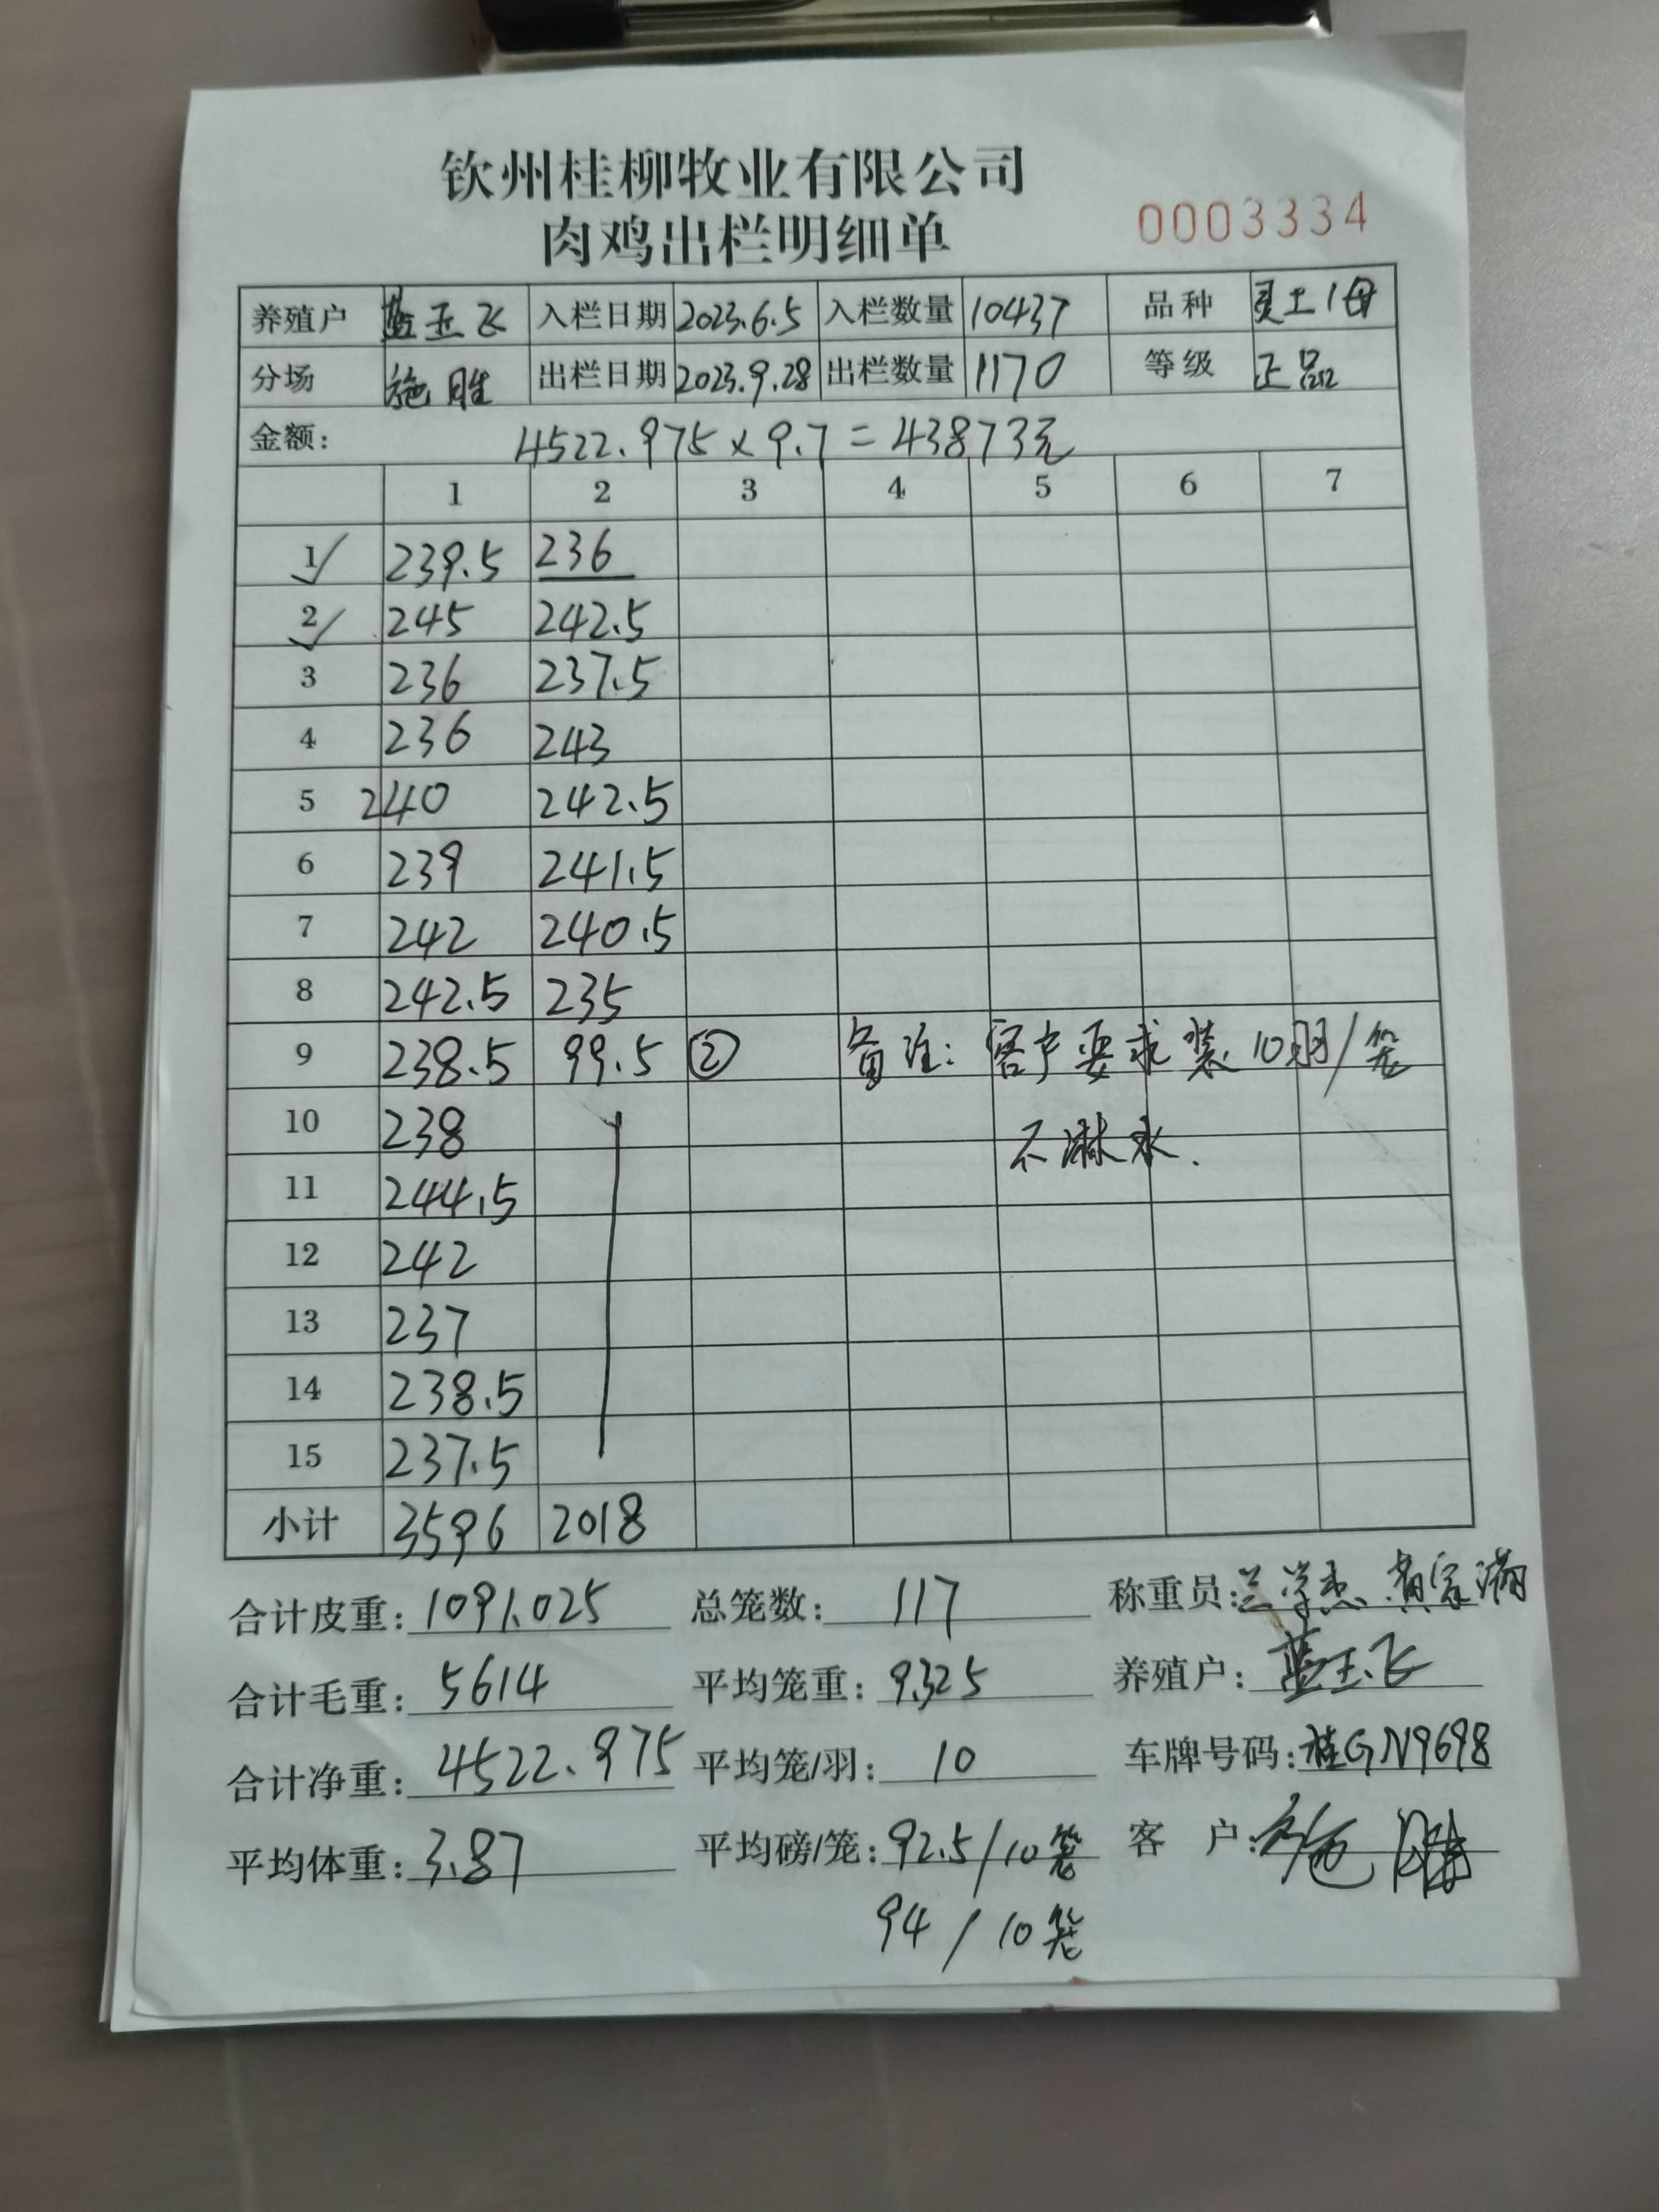 钦州桂柳牧业有限公司
肉鸡出栏明细单
0003334
养殖户 蓝玉飞 入栏日期 2023.6.5 入栏数量 10437 品种 灵土1母
分场 施胜 出栏日期 2023.9.28 出栏数量 1170 等级 正品
金额: 4522.975×9.7=43873元
1 2 3 4 5 6 7
1✓ 239.5 236
2✓ 245 242.5
3 236 237.5
4 236 243
5 240 242.5
6 239 241.5
7 242 240.5
8 242.5 235
9 238.5 99.5 ② 备注: 客户要求装10羽/笼
10 238 不淋水.
11 244.5
12 242
13 237
14 238.5
15 237.5
小计 3596 2018
合计皮重: 1091.025 总笼数: 117 称重员: 兰学杰 黄家满
合计毛重: 5614 平均笼重: 9.325 养殖户: 蓝玉飞
合计净重: 4522.975 平均笼/羽: 10 车牌号码: 桂GN9698
平均体重: 3.87 平均磅/笼: 92.5/10笼 客 户: 施胜
94/10笼